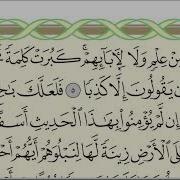 مِنْ عِلْمٍ وَلَا لِآبَائِهِمْ ۚ كَبُرَتْ كَلِمَةً
يَقُولُونَ إِلَّا كَذِبًا ٥ فَلَعَلَّكَ
لَّمْ يُؤْمِنُوا بِهَٰذَا الْحَدِيثِ أَسَفًا
الْأَرْضِ زِينَةً لَّهَا لِنَبْلُوَهُمْ أَيُّهُمْ